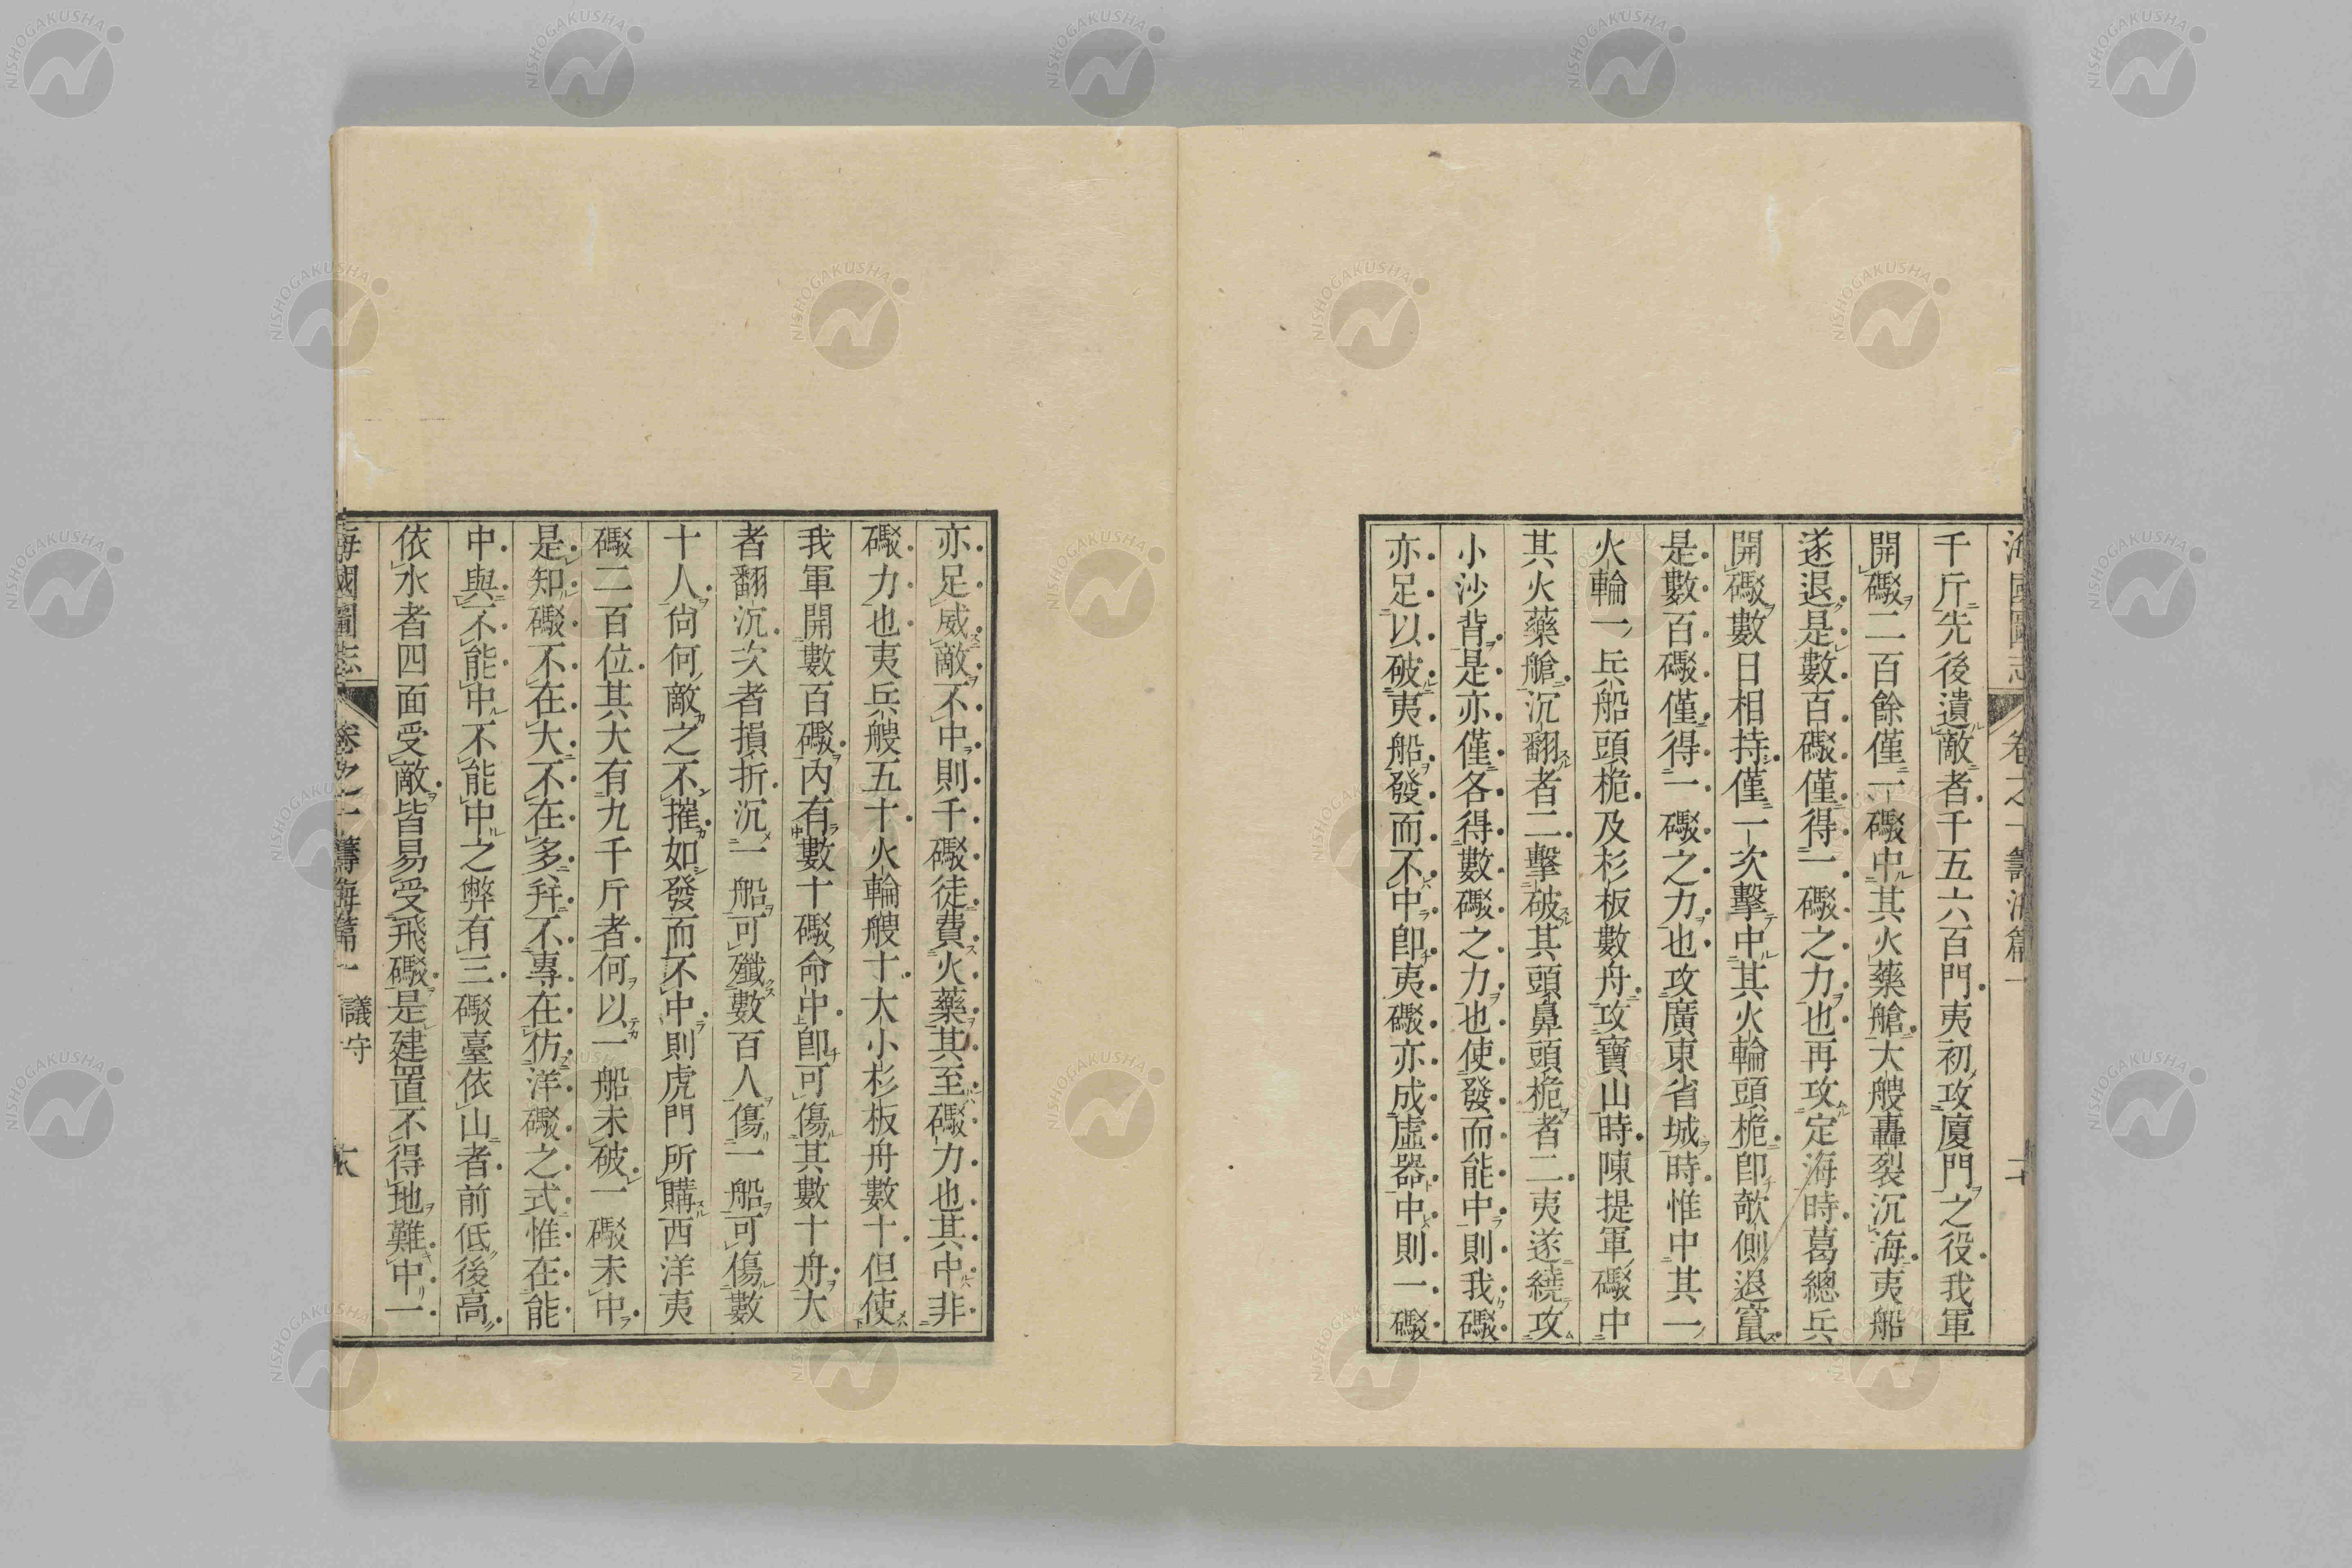 海國圖志 卷之一 籌海篇一 二十
千斤先後遺敵者千五六百門夷初攻廈門之役我軍
開礮二百餘僅一礮中其火藥艙大艘轟裂沉海夷船
遂退是數百礮僅得一礮之力也再攻定海時葛總兵
開礮數日相持僅一次擊中其火輪頭桅即欹側退竄
是數百礮僅得一礮之力也攻廣東省城時惟中其一
火輪一兵船頭桅及杉板數舟攻寶山時陳提軍礮中
其火藥艙沉翻者二擊破其頭鼻頭桅者二夷遂繞攻
小沙背是亦僅各得數礮之力也使發而能中則我礮
亦足以破夷船發而不中即夷礮亦成虛器中則一礮
亦足威敵不中則千礮徒費火藥其至礮力也其中非
礮力也夷兵艘五十火輪艘十大小杉板舟數十但使
我軍開數百礮內有數十礮命中即可傷其數十舟大
者翻沉次者損折沉一船可殲數百人傷一船可傷數
十人尙何敵之不摧如發而不中則虎門所購西洋夷
礮二百位其大有九千斤者何以一船未破一礮未中
是知礮不在大不在多幷不專在仿洋礮之式惟在能
中與不能中不能中之弊有三礮臺依山者前低後高
依水者四面受敵皆易受飛礮是建置不得地難中一
海國圖志 卷之一 籌海篇一 議守